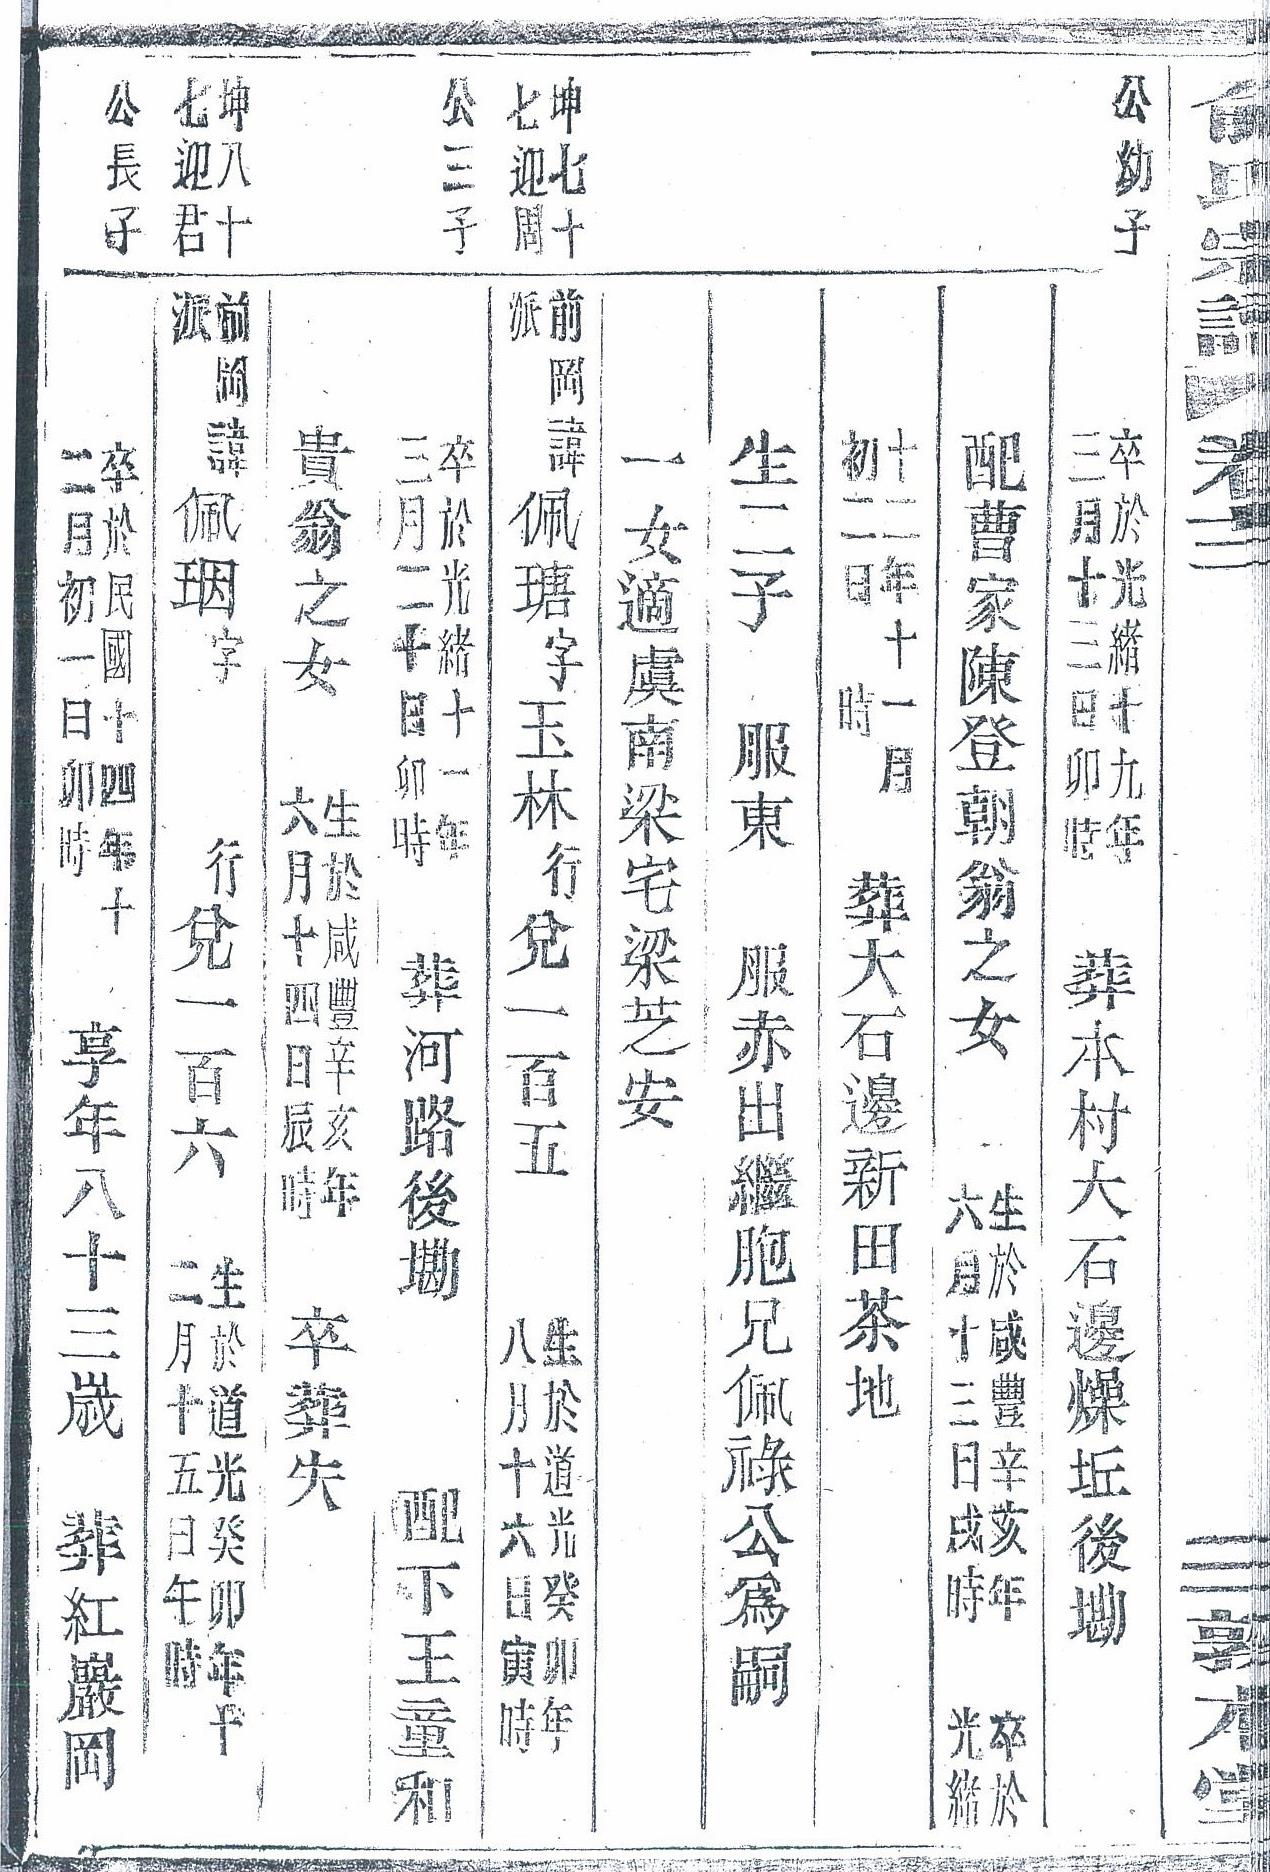 俞氏宗譜 卷三 敦本堂
公幼子
卒於光緒十九年
三月十三日卯時
葬本村大石邊燥坵後塝
配曹家陳登朝翁之女
生於咸豐辛亥年
六月十三日戌時
卒於
光緒
十二年十一月
初二日 時
葬大石邊新田茶地
生二子 服東 服赤出繼胞兄佩祿公爲嗣
一女適虞南梁宅梁芝安
坤七十
七迎周
公三子
前岡
派
諱佩瑭字玉林行兌一百五
生於道光癸卯年
八月十六日寅時
卒於光緒十一年
三月二十日卯時
葬河路後塝 配下王童和
貴翁之女
生於咸豐辛亥年
六月十四日辰時
卒葬失
坤八十
七迎君
公長子
前岡
派
諱佩珚字 行兌一百六
生於道光癸卯年十
二月十五日午時
卒於民國十四年十
二月初一日卯時
享年八十三歲 葬紅巖岡